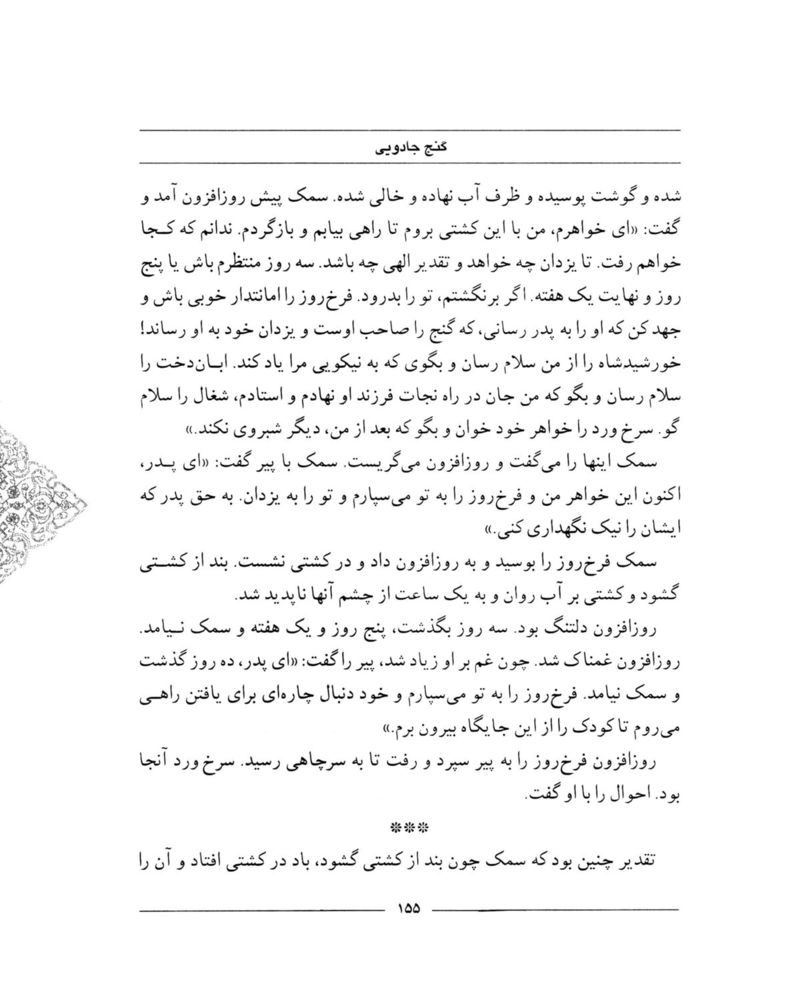 گنج جادویی
شده و گوشت پوسیده و ظرف آب نهاده و خالی شده. سمک پیش روزافزون آمد و
گفت: «ای خواهرم، من با این کشتی بروم تا راهی بیابم و بازگردم. ندانم که کجا
خواهم رفت. تا یزدان چه خواهد و تقدیر الهی چه باشد. سه روز منتظرم باش یا پنج
روز و نهایت یک هفته. اگر برنگشتم، تو را بدرود. فرخ‌روز را امانتدار خوبی باش و
جهد کن که او را به پدر رسانی، که گنج را صاحب اوست و یزدان خود به او رساند!
خورشیدشاه را از من سلام رسان و بگوی که به نیکویی مرا یاد کند. ابان‌دخت را
سلام رسان و بگو که من جان در راه نجات فرزند او نهادم و استادم، شغال را سلام
گو. سرخ ورد را خواهر خود خوان و بگو که بعد از من، دیگر شبروی نکند.»
سمک اینها را می‌گفت و روزافزون می‌گریست. سمک با پیر گفت: «ای پدر،
اکنون این خواهر من و فرخ‌روز را به تو می‌سپارم و تو را به یزدان. به حق پدر که
ایشان را نیک نگهداری کنی.»
سمک فرخ‌روز را بوسید و به روزافزون داد و در کشتی نشست. بند از کشتی
گشود و کشتی بر آب روان و به یک ساعت از چشم آنها ناپدید شد.
روزافزون دلتنگ بود. سه روز بگذشت، پنج روز و یک هفته و سمک نیامد.
روزافزون غمناک شد. چون غم بر او زیاد شد، پیر را گفت: «ای پدر، ده روز گذشت
و سمک نیامد. فرخ‌روز را به تو می‌سپارم و خود دنبال چاره‌ای برای یافتن راهی
می‌روم تا کودک را از این جایگاه بیرون برم.»
روزافزون فرخ‌روز را به پیر سپرد و رفت تا به سرچاهی رسید. سرخ ورد آنجا
بود. احوال را با او گفت.
***
تقدیر چنین بود که سمک چون بند از کشتی گشود، باد در کشتی افتاد و آن را
۱۵۵